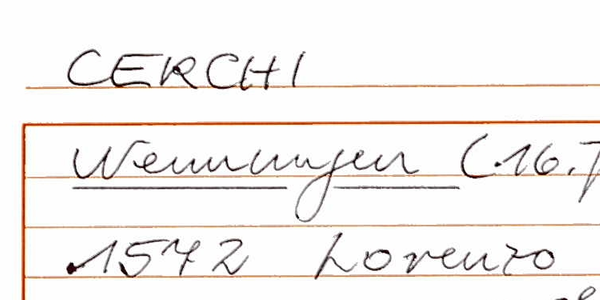 CERCHI
Wenningen (16.J
1572 Lorenzo